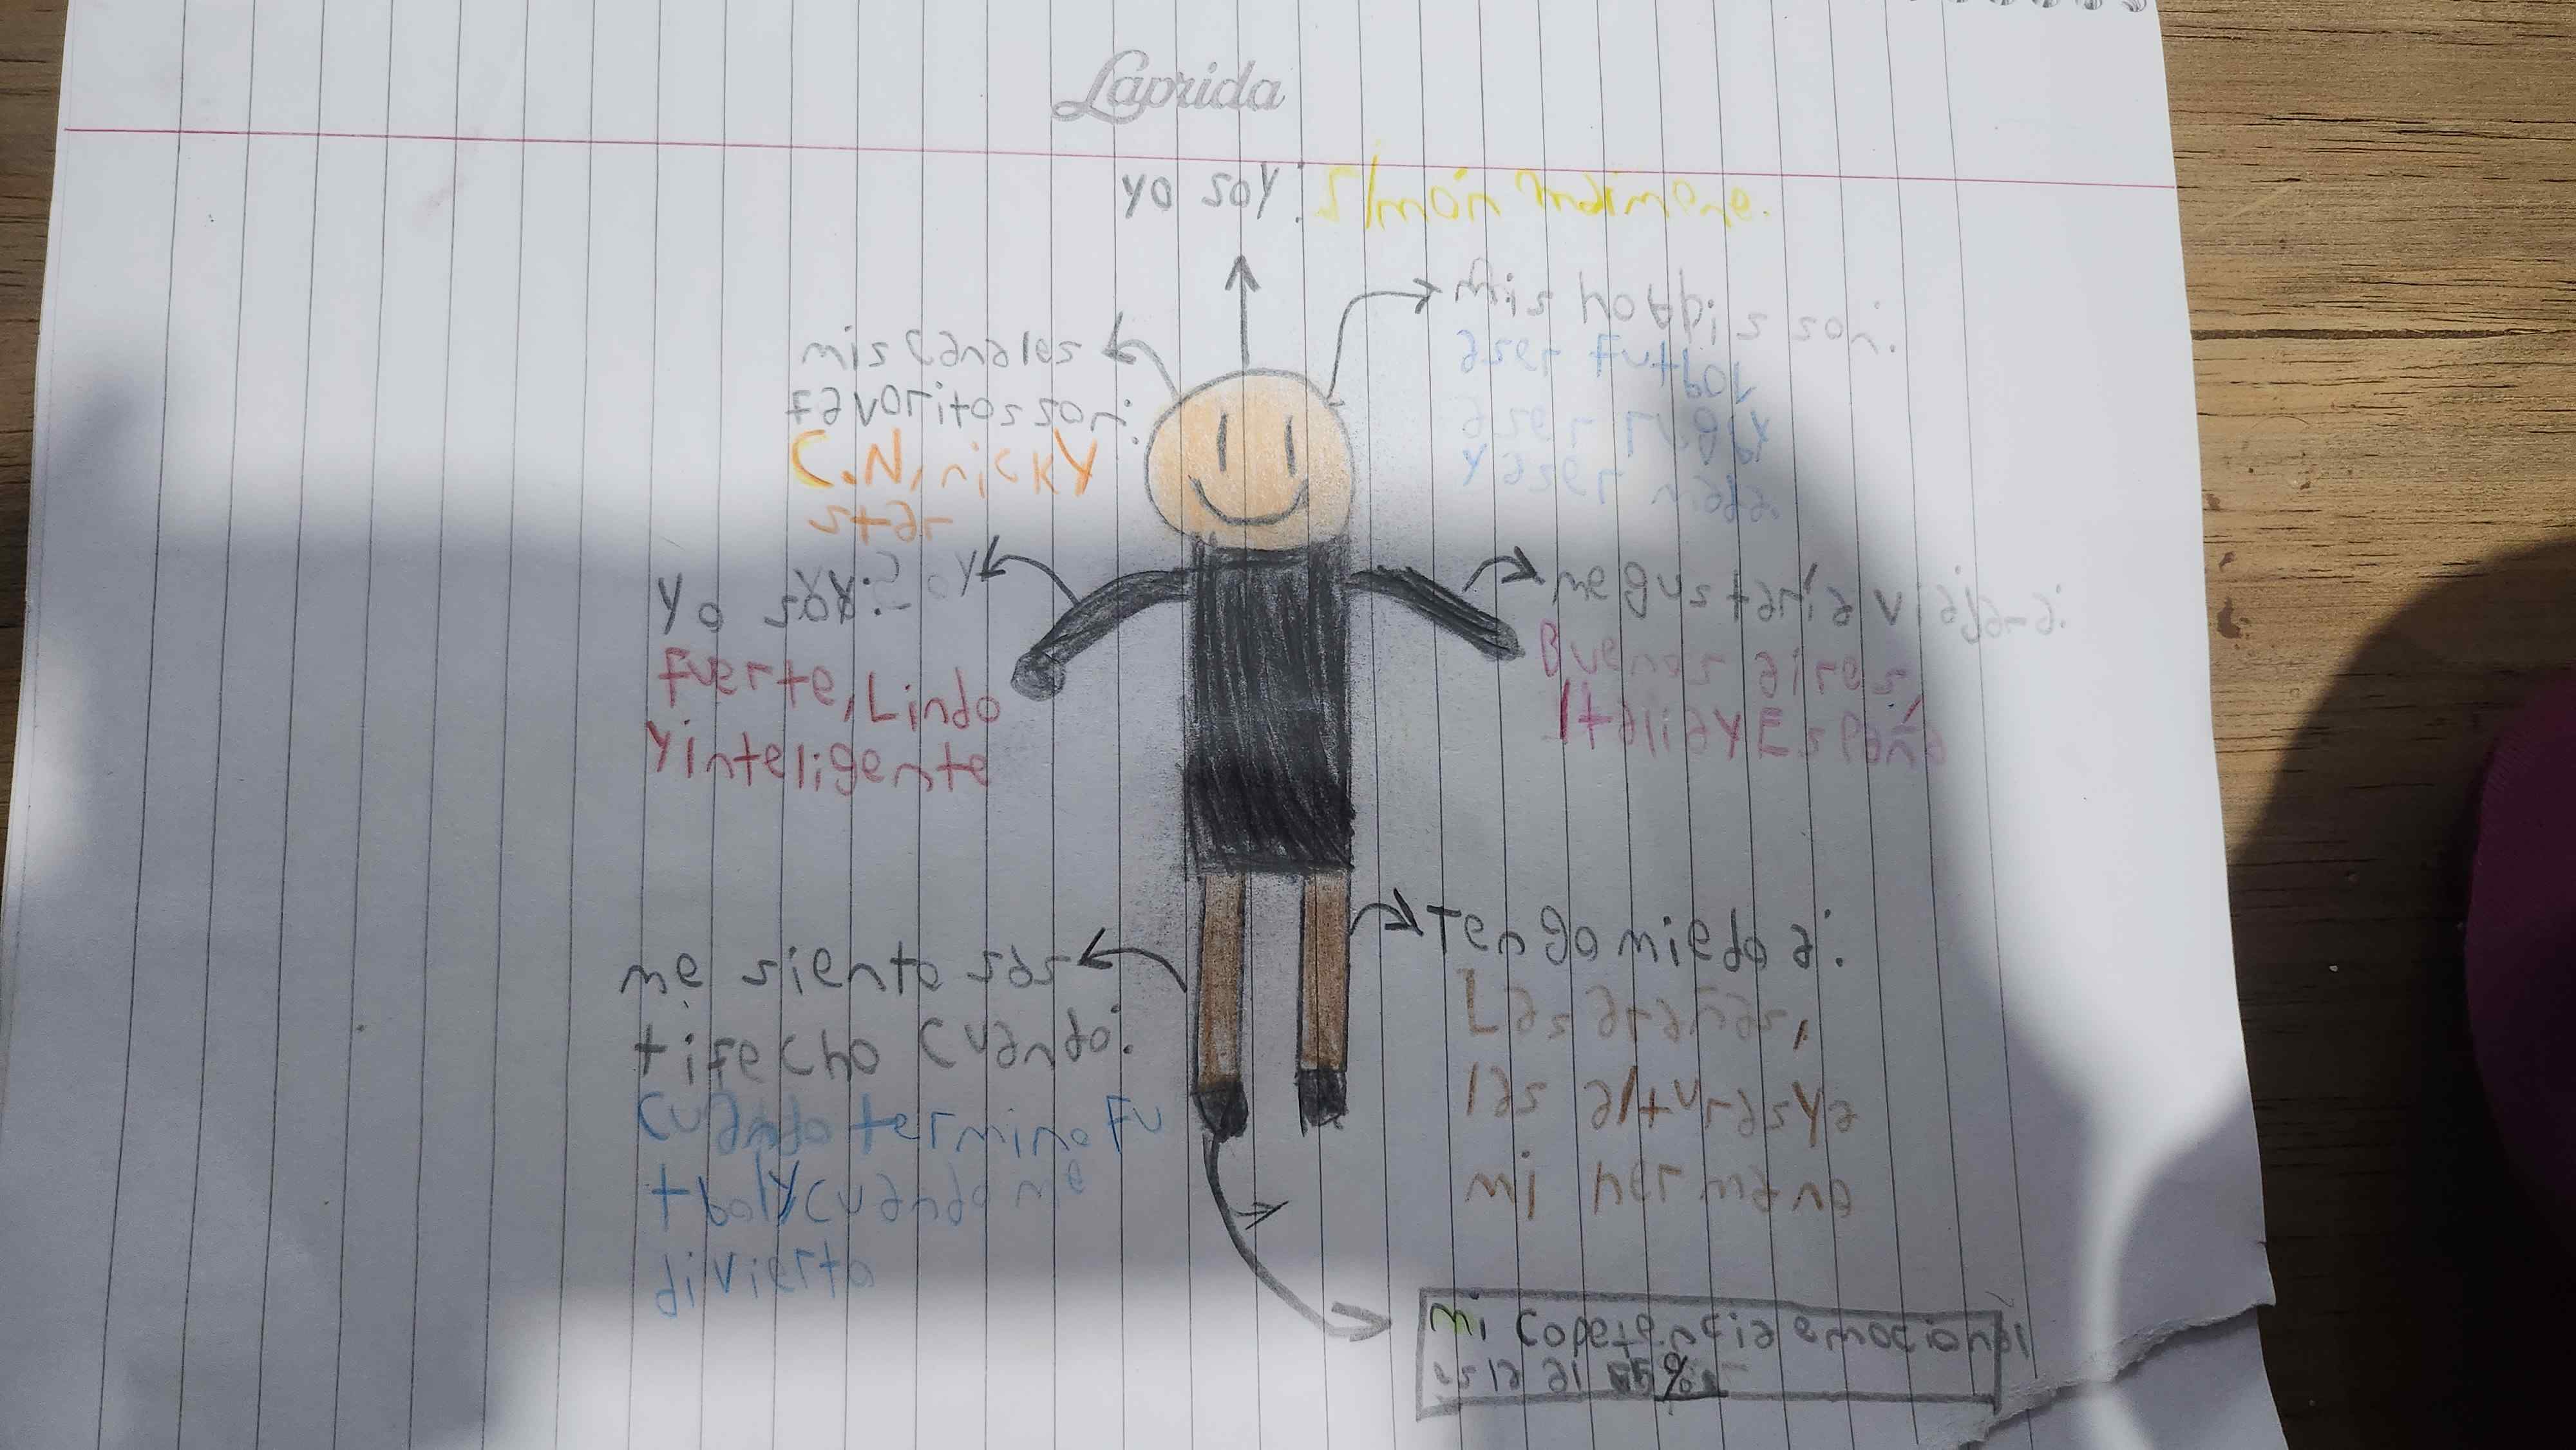 Laprida
yo soy: Simón
mis canales
favoritos son:
C.N, nicky
star
mis hobbis son:
aser futbol
aser rugby
y aser nada.
yo soy: soy
fuerte, Lindo
y inteligente
me gustaría viajar a:
Buenos aires,
Italia y España
me siento sas
tifecho cuando:
cuando termino fu
tbol y cuando me
divierto
Tengo miedo a:
Las arañas,
las alturas y a
mi hermano
mi copetencia emocional
esta al 55%